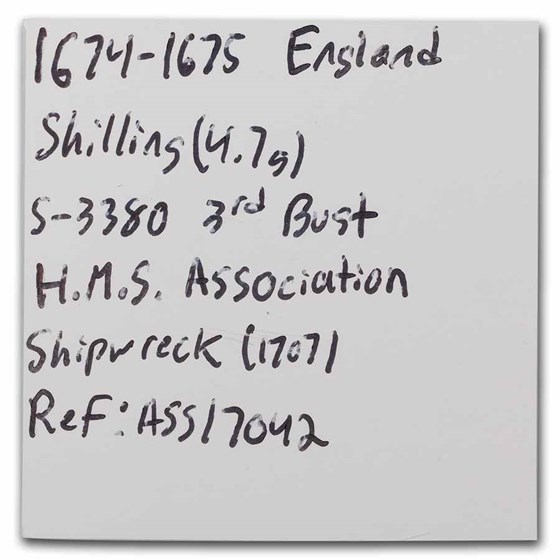 1674-1675 England
Shilling (4.7g)
S-3380 3rd Bust
H.M.S. Association
Shipwreck (1707)
Ref: ASS17042